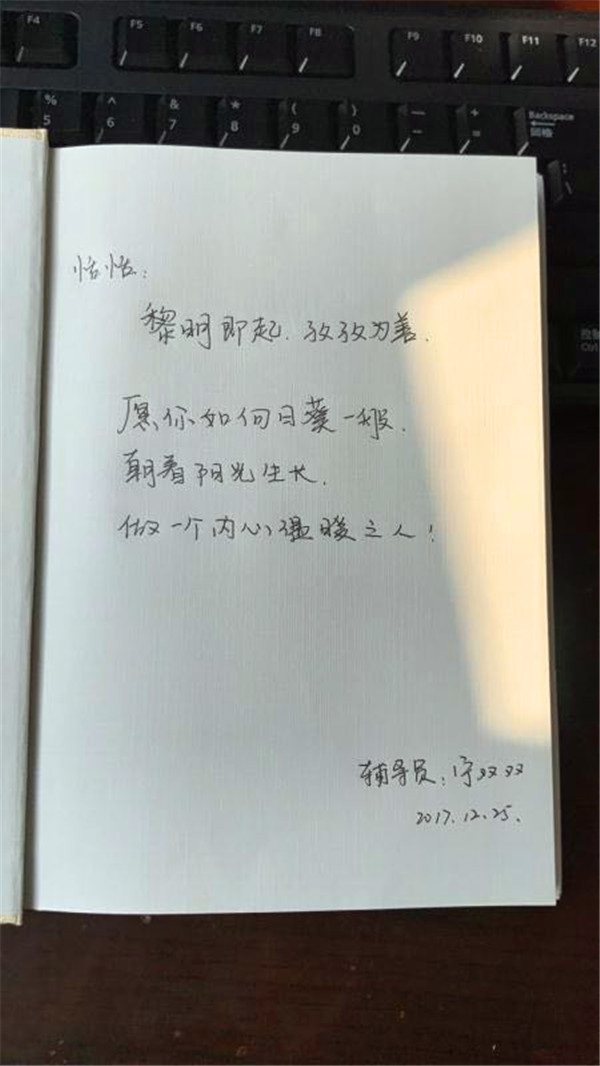 F4 F5 F6 F7 F8 F9 F10 F11 F12
% 5 ^ 6 & 7 * 8 ( 9 ) 0 — - + = Backspace 回格
控制
Ctrl
恬恬：
黎明即起.孜孜为善.
愿你如向日葵一般.
朝着阳光生长.
做一个内心温暖之人！
辅导员：宁双双
2017.12.25.